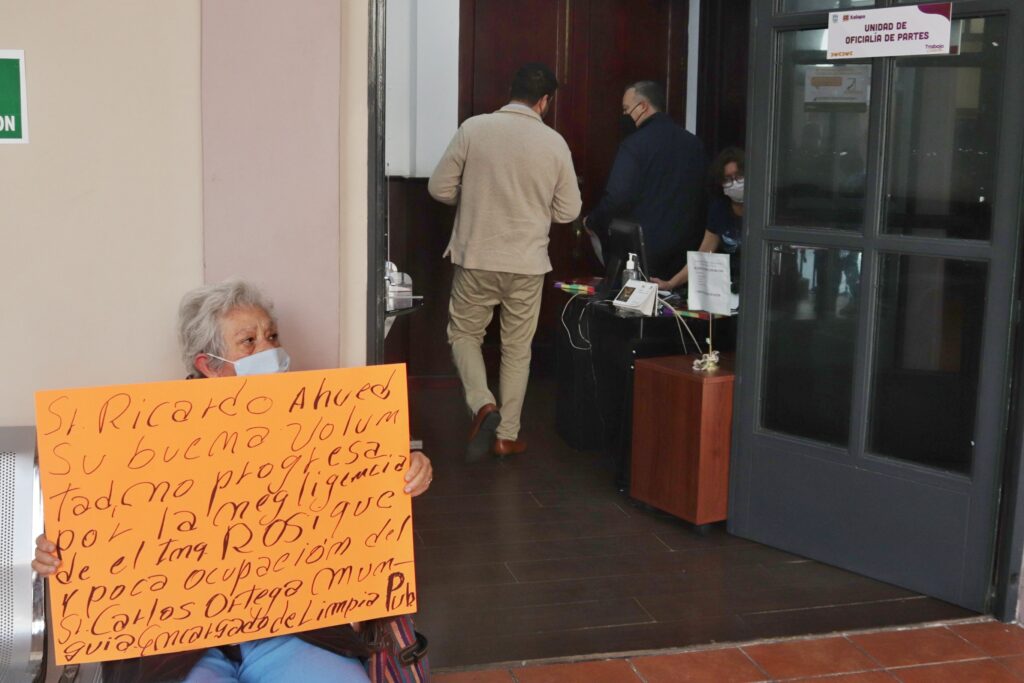 ON
Xalapa
UNIDAD DE
OFICIALÍA DE PARTES
Sr. Ricardo Ahued,
Su buena volum
tad, no progresa
por la negligencia
de el Ing ROSi que
y poca ocupación del
Sr. Carlos Ortega Mun-
guia Encargado de Limpia Pub